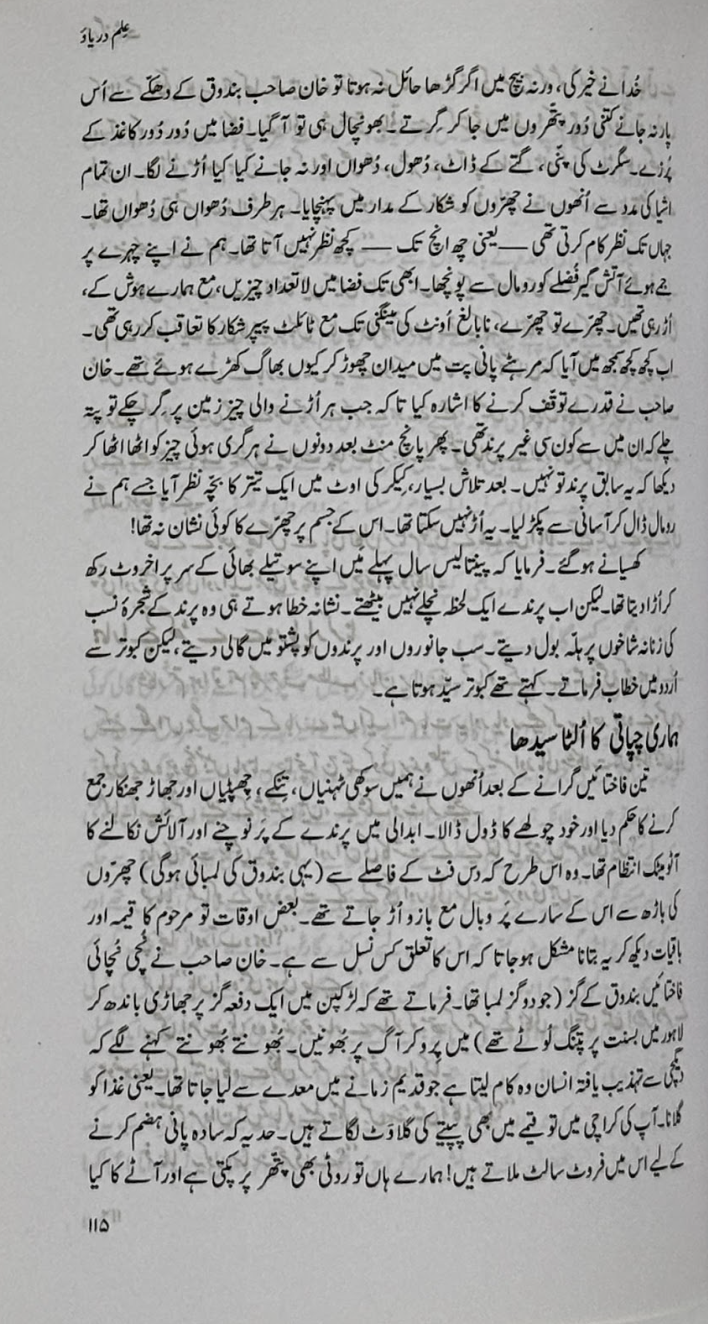 علم دریاؤ
خُدا نے خیر کی، ورنہ بیچ میں اگر گڑھا حائل نہ ہوتا تو خان صاحب بندوق کے دھکّے سے اُس
پار نہ جانے کتنی دُور پتھّروں میں جا کر گِرتے۔ بھونچال ہی تو آ گیا۔ فضا میں دُور دُور کاغذ کے
پُرزے۔ سگرٹ کی پنّی، گتے کے ڈاٹ، دُھول، دُھواں اور نہ جانے کیا کیا اُڑنے لگا۔ ان تمام
اشیا کی مدد سے اُنھوں نے چھرّوں کو شکار کے مدار میں پہنچایا۔ ہر طرف دُھواں ہی دُھواں تھا۔
جہاں تک نظر کام کرتی تھی —— یعنی چھ انچ تک —— کچھ نظر نہیں آتا تھا۔ ہم نے اپنے چہرے پر
جمے ہوئے آتش گیر فُضلے کو رومال سے پونچھا۔ ابھی تک فضا میں لاتعداد چیزیں، مع ہمارے ہوش کے،
اُڑ رہی تھیں۔ چھرّے تو چھرّے، نابالغ اُونٹ کی مینگنی تک مع ٹائلٹ پیپر شکار کا تعاقب کر رہی تھی۔
اب کچھ کچھ سمجھ میں آیا کہ مرہٹے پانی پت میں میدان چھوڑ کر کیوں بھاگ کھڑے ہوئے تھے۔ خان
صاحب نے قدرے توقّف کرنے کا اشارہ کیا تاکہ جب ہر اُڑنے والی چیز زمین پر گِر چکے تو پتہ
چلے کہ ان میں سے کون سی غیر پرند تھی۔ پھر پانچ منٹ بعد دونوں نے ہر گری ہوئی چیز کو اٹھا اٹھا کر
دیکھا کہ یہ سابق پرند تو نہیں۔ بعد تلاش بسیار، کیکر کی اوٹ میں ایک تیتر کا بچّہ نظر آیا جسے ہم نے
رومال ڈال کر آسانی سے پکڑ لیا۔ یہ اُڑ نہیں سکتا تھا۔ اس کے جسم پر چھرّے کا کوئی نشان نہ تھا!
کھسیانے ہو گئے۔ فرمایا کہ پینتالیس سال پہلے میں اپنے سوتیلے بھائی کے سر پر اخروٹ رکھ
کر اُڑا دیتا تھا۔ لیکن اب پرندے ایک لحظہ نچلے نہیں بیٹھتے۔ نشانہ خطا ہوتے ہی وہ پرند کے شجرۂ نسب
کی زنانہ شاخوں پر ہلّہ بول دیتے۔ سب جانوروں اور پرندوں کو پشتو میں گالی دیتے، لیکن کبوتر سے
اُردو میں خطاب فرماتے۔ کہتے تھے کبوتر سیّد ہوتا ہے۔
ہماری چپاتی کا اُلٹا سیدھا
تین فاختائیں گرانے کے بعد اُنھوں نے ہمیں سوکھی ٹہنیاں، تنکے، چھپٹیاں اور جھاڑ جھنکار جمع
کرنے کا حکم دیا اور خود چولھے کا ڈول ڈالا۔ ابدالی میں پرندے کے پَر نوچنے اور آلائش نکالنے کا
آٹومیٹک انتظام تھا۔ وہ اس طرح کہ دس فٹ کے فاصلے سے (یہی بندوق کی لمبائی ہوگی) چھرّوں
کی باڑھ سے اس کے سارے پَر و بال مع بازو اُڑ جاتے تھے۔ بعض اوقات تو مرحوم کا قیمہ اور
باقیات دیکھ کر یہ بتانا مشکل ہو جاتا کہ اس کا تعلق کس نسل سے ہے۔ خان صاحب نے نُچی نُچائی
فاختائیں بندوق کے گز (جو دو گز لمبا تھا۔ فرماتے تھے کہ لڑکپن میں ایک دفعہ گز پر جھاڑی باندھ کر
لاہور میں بسنت پر پتنگ لُوٹے تھے) میں پرو کر آگ پر بھُونیں۔ بھُونتے بھُونتے کہنے لگے کہ
دیگچی سے تہذیب یافتہ انسان وہ کام لیتا ہے جو قدیم زمانے میں معدے سے لیا جاتا تھا۔ یعنی غذا کو
گلانا۔ آپ کی کراچی میں تو قیمے میں بھی پپیتے کی گلاوٹ لگاتے ہیں۔ حد یہ کہ سادہ پانی ہضم کرنے
کے لیے اس میں فروٹ سالٹ ملاتے ہیں! ہمارے ہاں تو روٹی بھی پتھّر پر پکتی ہے اور آٹے کا کیا
۱۱۵